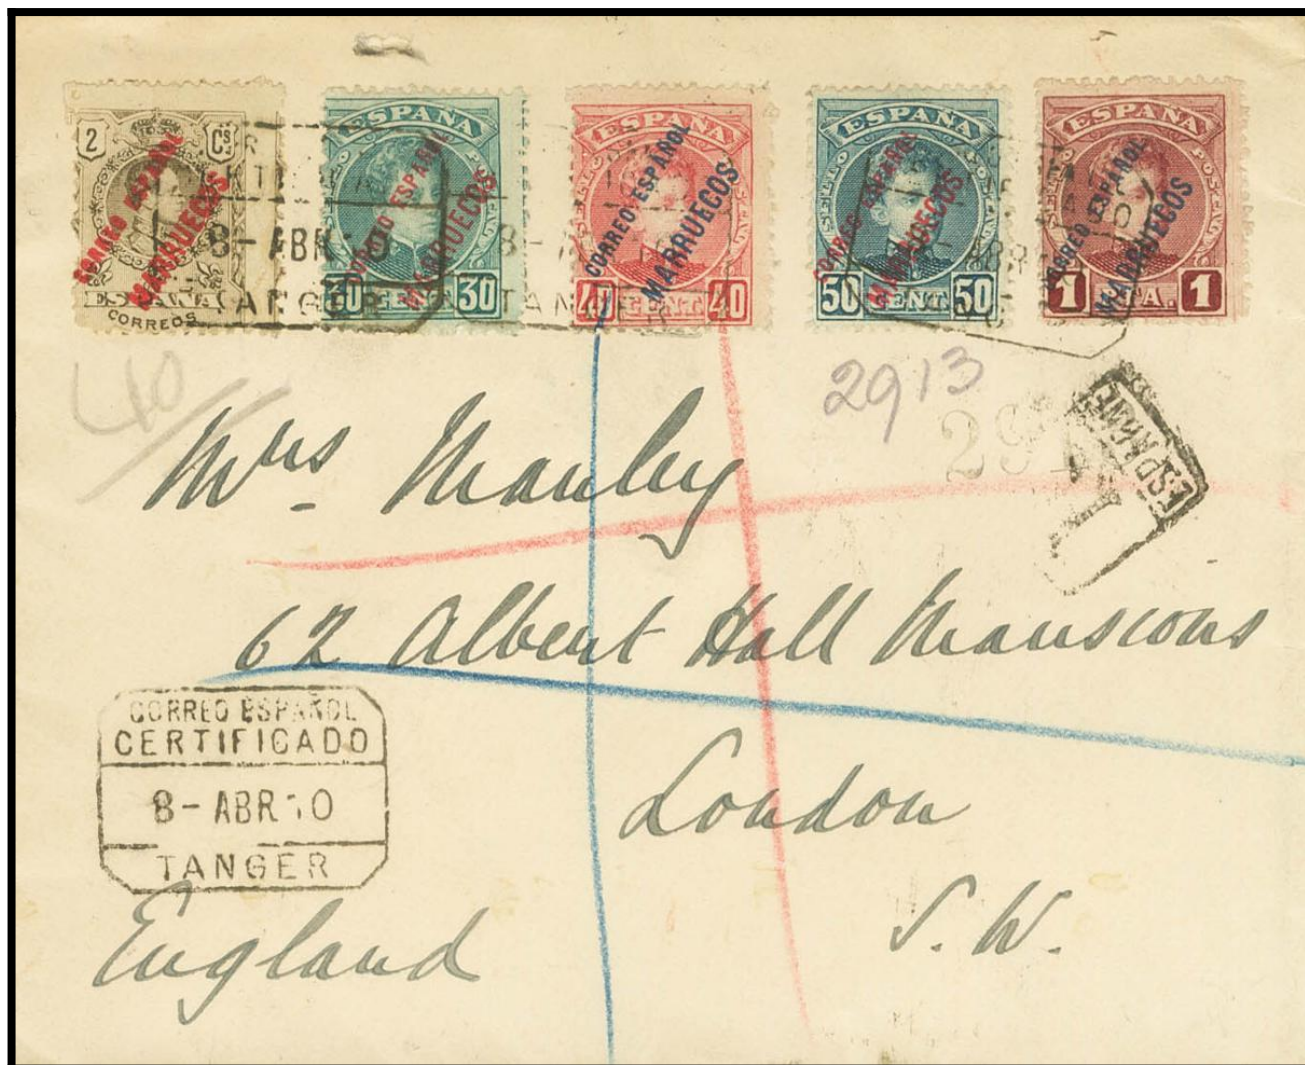 2 Cs
CORREO ESPAÑOL
MARRUECOS
ESPAÑA
CORREOS
ESPAÑA
CORREO ESPAÑOL
MARRUECOS
30 CENT. 30
ESPAÑA
CORREO ESPAÑOL
MARRUECOS
40 CENT. 40
ESPAÑA
CORREO ESPAÑOL
MARRUECOS
50 CENT. 50
ESPAÑA
CORREO ESPAÑOL
MARRUECOS
1 PTA. 1
8-ABR
TANGER
TANGER
40
2913
Mrs Manley
62 Albert Hall Mansions
London
S.W.
England
CORREO ESPAÑOL
CERTIFICADO
8-ABR 10
TANGER